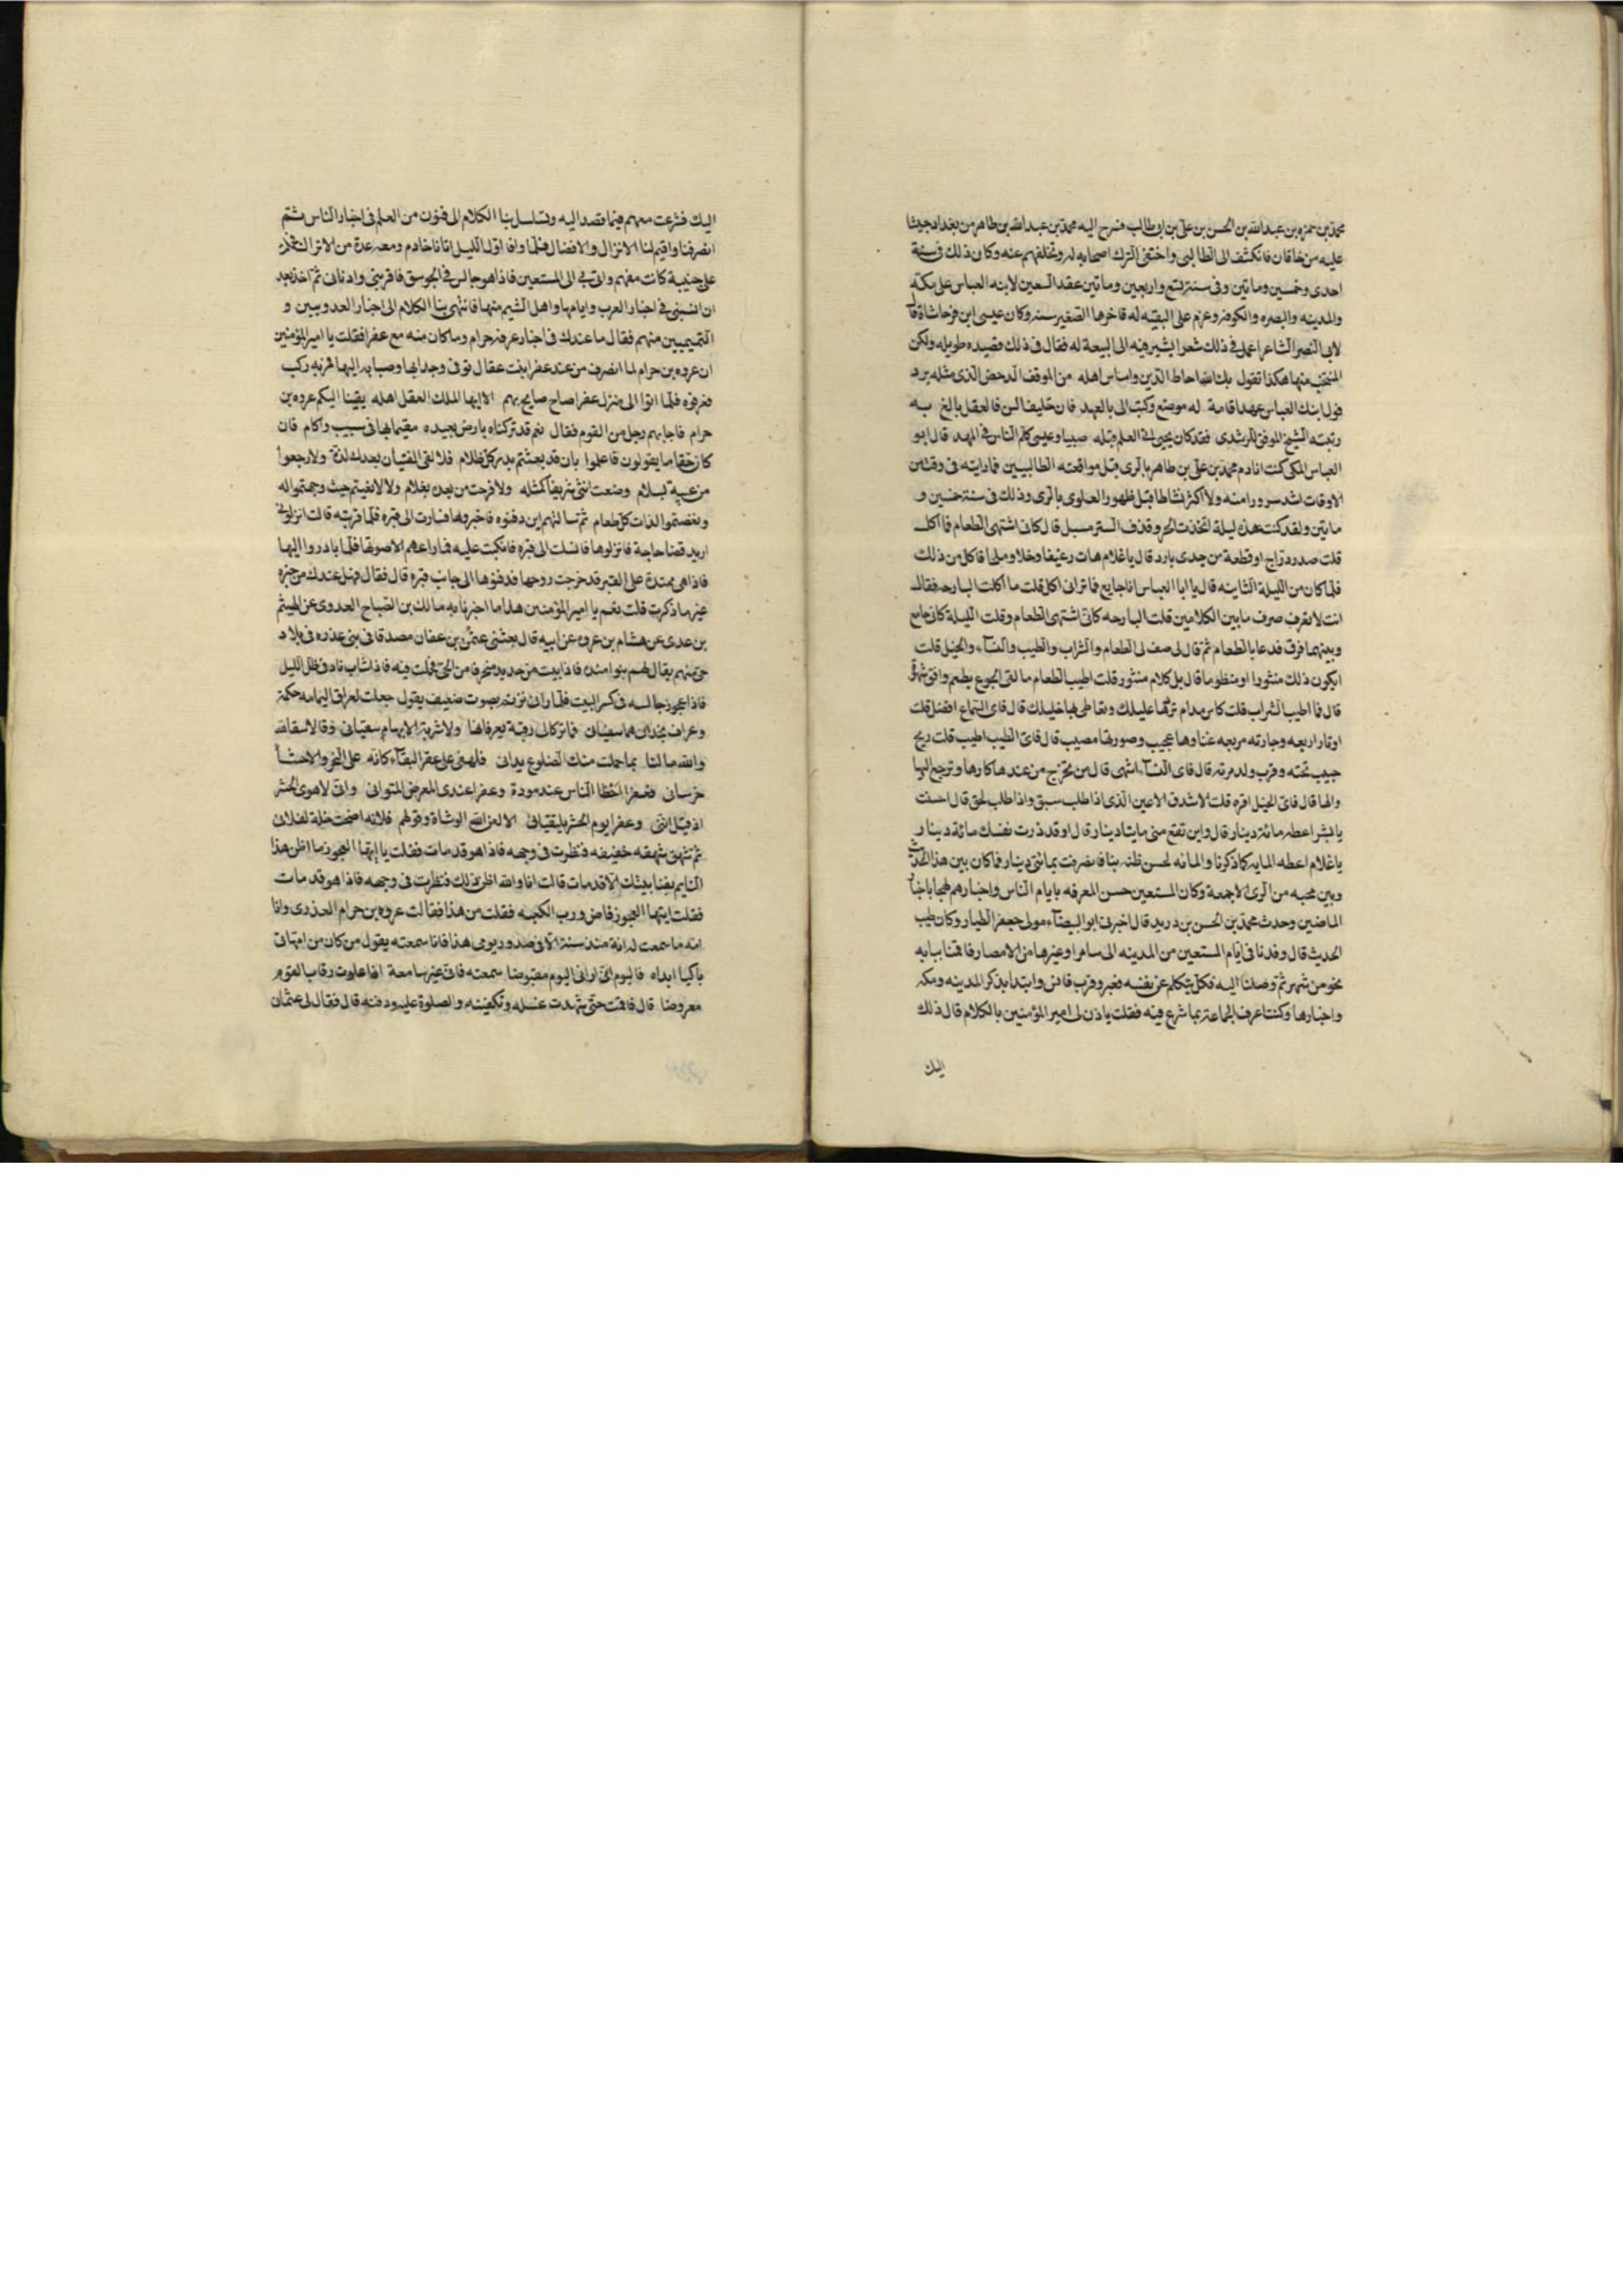 محمد بن حمزه بن عبد الله بن الحسن بن على بن ابى طالب فسرح اليه محمد بن عبد الله بن طاهر من بغداد جيشا
عليه بن خاقان فانكشف الطالبى واختفى لترك اصحابه له وتخلفهم عنه وكان ذلك فى سنة
احدى وخمسين وماتين وفى سنة تسع واربعين وماتين عقد المستعين لابنه العباس على مكه
والمدينه والبصره والكوفه وعزم على البيعه له فاخرها لصغر سنه وكان عيسى ابن فرخانشاة قال
لابى البصير الشاعر اعمل فى ذلك شعرا يشير فيه الى البيعة له فقال فى ذلك قصيده طويله ولكن
المنتخب منها هكذا تقول بك الله حاط الدين واساس اهله من الموقف الدحض الذى مثله يرد
فول ابنك العباس عهدا قامة له موضع وكتب الى بالعهد فان خليف السن فالعقل بالغ به
رتبته الشيخ الموفق للرشدى فقد كان يحيى فى العلم قبله صبيا وعيسى كلم الناس فى المهد قال ابو
العباس المكى كنت انادم محمد بن على بن طاهر بالرى قبل مواقعته الطالبيين فما رايته فى وقت من
الاوقات اشد سرورا منه ولا اكثر نشاطا قبل ظهور العلوى بالرى وذلك فى سنة خمسين و
ماتين ولقد كنت عنده ليلة اتحدث الحر وقذف الستر مسبل قال كانى اشتهى الطعام فما اكل
قلت صدر دراج او قطعة من جدى بارد قال يا غلام هات رغيفا وخلا وملحا فاكل من ذلك
فلما كان من الليلة الثانيه قال يا ابا العباس انا جايع فما ترانى اكل قلت ما اكلت البارحه فقال
انت لا تعرف صرف ما بين الكلامين قلت البارحه كانى اشتهى الطعام وقلت الليلة كانى جايع
وبينهما فرق فدعا بالطعام ثم قال لى صف لى الطعام والشراب والطيب والنساء والخيل قلت
ايكون ذلك منثورا او منظوما قال بل كلام منثور قلت اطيب الطعام ما لقى الجوع بطعم وافق شهوة
قال فما اطيب الشراب قلت كاس مدام تردها عليلك وتعاطى بها خليلك قال فاى السماع افضل قلت
اوتار اربعه وجاريه مربعه غناوها عجيب وصورتها مصيب قال فاى الطيب اطيب قلت ريح
حبيب تحبه وقرب ولد تربه قال فاى النساء اشهى قال من تخرج من عندها كارها وترجع اليها
والها قال فاى الخيل افره قلت الاشدق الاعين الذى اذا طلب سبق واذا طلب لحق قال احسنت
يا بشر اعطه مائة دينار قال واين تقع منى مايتا دينار قال اوقد زدت نفسك مائة دينار
يا غلام اعطه المايه كما ذكرنا والمائه لحسن ظنه بنا فانصرفت بمائتى دينار فما كان بين هذا الحديث
وبين مخيه من الرى الا جمعة وكان المستعين حسن المعرفه بايام الناس واخبارهم لهجا باخبار
الماضين وحدث محمد بن الحسن بن دريد قال اخبرنى ابو البيضاء مولى جعفر الطيار وكان طيب
الحديث قال وفدنا فى ايام المستعين من المدينه الى سامرا وغيرها من الامصار فاقمنا ببابه
نحو من شهر ثم وصلنا اليه فكل تكلم عن نفسه فقر وقرب فانس وابتدا بذكر المدينه ومكه
واخبارها وكنت اعرف الجماعة بما شرع فيه فقلت ياذن لى امير المؤمنين بالكلام قال ذلك
اليك
اليك فشرعت معهم فيما قصد اليه وتسلسل بنا الكلام الى فنون من العلم فى اخبار الناس ثم
انصرفنا واقيم لنا الانزال والافضال فلما وافا اول الليل اتانا خادم ومعه عدة من الاتراك
على جنيبة كانت معهم واتى بى الى المستعين فاذا هو جالس فى الجوسق فاقربنى وادنانى ثم اخذ بعد
ان انسنى فى اخبار العرب وايامها واهل المتيم منها فانتهى بنا الكلام الى اخبار العدويين و
التميميين منهم فقال ما عندك فى اخبار عروه حرام وما كان منه مع عفرا فقلت يا امير المؤمنين
ان عروه بن حرام لما انصرف من عند عفرا بنت عقال توفى وجدا بها وصبابه اليها فمر به ركب
فعرفوه فلما اتوا الى منزل عفرا صاح صايح بهم الا ايها الملك العقل اهله يقينا اليكم عروه بن
حرام فاجابهم رجل من القوم فقال نعم قد تركناه بارض بعيده مقيما بها فى سبسب واكام فان
كان حقا ما يقولون فاعلموا بان قد نعيتم بدر كل ظلام فلا لقى الفتيان بعدك لذة ولا رجعوا
من غيبة بسلام وضعت انثى شريفا كمثله ولا فرحت من بعده بغلام ولا لا بغيتم حيث وجهتموا له
ونغصتموا لذات كل طعام ثم تسالتهم اين دفنوه فاخبروها فسارت الى قبره فلما قربته قالت انزلونى
اريد قضا حاجة فانزلوها فانسلت الى قبره فانكبت عليه فما راعهم الا صوتها فلما بادروا اليها
فاذا هى ممتدة على القبر قد خرجت روحها فدفنوها الى جانب قبره قال فقال فهل عندك من خبره
غير ما ذكرت قلت نعم يا امير المؤمنين هذا ما اخبرنا به مالك بن الصباح العدوى عن الهيثم
بن عدى عن هشام بن عروه عن ابيه قال بعثنى عثمن بن عفان مصدقا فى بنى عذره فى بلاد
حى منهم يقال لهم بنوا منده فاذا بيت من جديد منحرفا من الحى فملت فيه فاذا شاب نايم فى ظل الليل
فاذا عجوز جالسه فى كسر البيت فلما رانى ترنم بصوت ضعيف يقول جعلت لعراف اليمامه حكمة
وعراف نجد ان هما سفيان فما تركا لى رقية يعرفانها ولا شربة الا بها سقيانى وقالا شفاك الله
والله ما لنا بما حملت منك الضلوع يدانى فلهفى على عفرا البقاء كانه على النحر والاحشا
خرسانى فعفرا احظا الناس عند مودة وعفرا عندى المعرض المتوانى وانى لاهوى الحشر
اذ قيل اننى وعفرا يوم الحشر ملتقيانى الا لعن الله الوشاة وقولهم فلانه اضحت خلة لفلان
ثم شهق شهقه خفيفه فنظرت فى وجهه فاذا هو قد مات فقلت يا ايتها العجوز ما اظن هذا
النايم بفنا بيتك الا قد مات قالت انا والله اظن ذلك فنظرت فى وجهه فاذا هو قد مات
فقلت ايتها العجوز فاض ورب الكعبه فقلت من هذا فقالت عروه بن حرام العذرى وانا
امه ما سمعت له انة منذ سنة الا فى صدر يومى هذا فانا سمعته يقول من كان من امهاتى
باكيا ابداه فاليوم انى ارانى اليوم مقبوضا سمعته فانى غير سامعة اذا علوت رقاب القوم
معروضا قال فاقمت حتى شهدت غسله وتكفينه والصلوة عليه ودفنه قال فقال لى عثمان